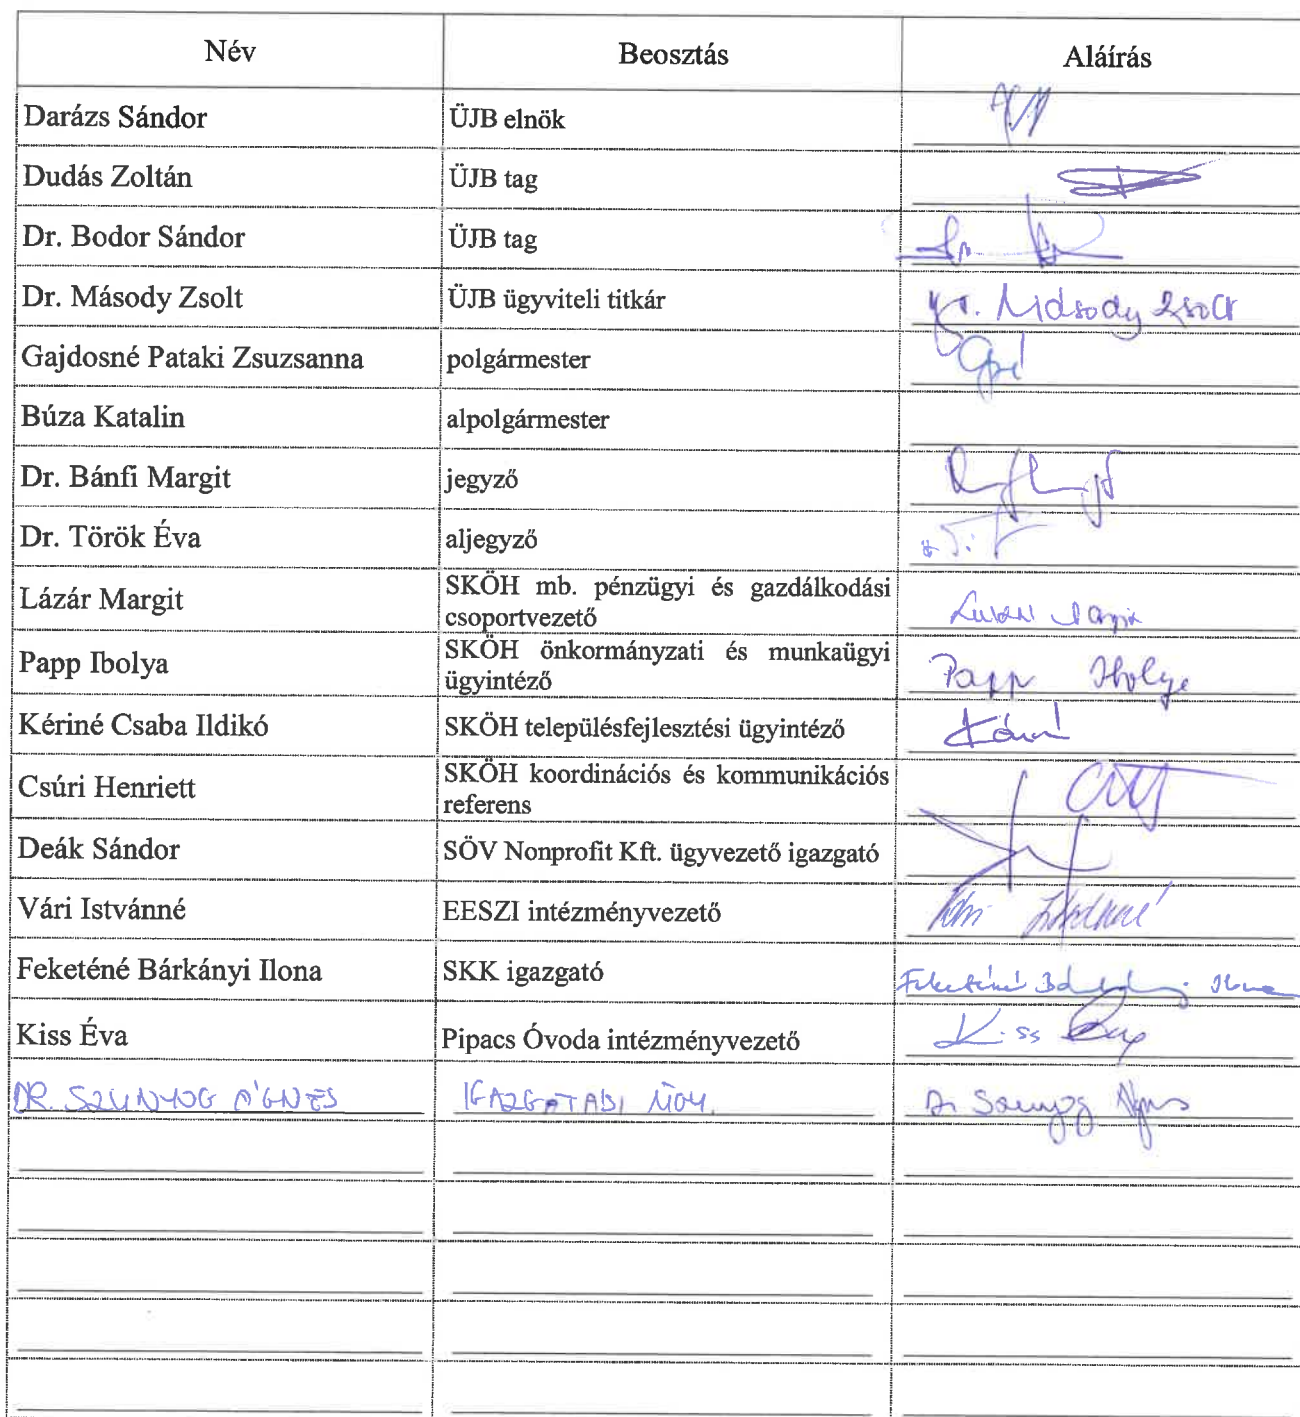 Név Beosztás Aláírás
Darázs Sándor ÜJB elnök
Dudás Zoltán ÜJB tag
Dr. Bodor Sándor ÜJB tag
Dr. Másody Zsolt ÜJB ügyviteli titkár Dr. Másody Zsolt
Gajdosné Pataki Zsuzsanna polgármester
Búza Katalin alpolgármester
Dr. Bánfi Margit jegyző
Dr. Török Éva aljegyző
Lázár Margit SKÖH mb. pénzügyi és gazdálkodási
csoportvezető
Papp Ibolya SKÖH önkormányzati és munkaügyi
ügyintéző Papp Ibolya
Kériné Csaba Ildikó SKÖH településfejlesztési ügyintéző
Csúri Henriett SKÖH koordinációs és kommunikációs
referens
Deák Sándor SÖV Nonprofit Kft. ügyvezető igazgató
Vári Istvánné EESZI intézményvezető Vári Istvánné
Feketéné Bárkányi Ilona SKK igazgató Feketéné Bárkányi Ilona
Kiss Éva Pipacs Óvoda intézményvezető Kiss Éva
DR. SZUNYOG ÁGNES Dr Szunyog Ágnes